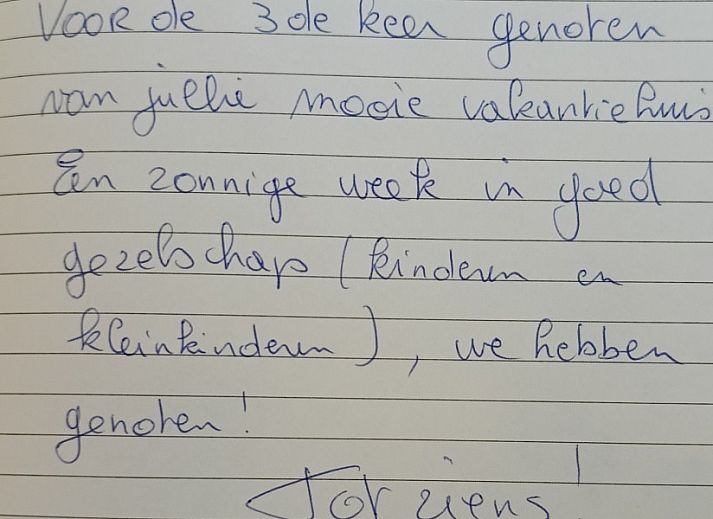 Voor de 3de keer genoten
van jullie mooie vakantiehuis
Een zonnige week in goed
gezelschap (kinderen en
kleinkinderen), we hebben
genoten!
Tot ziens!